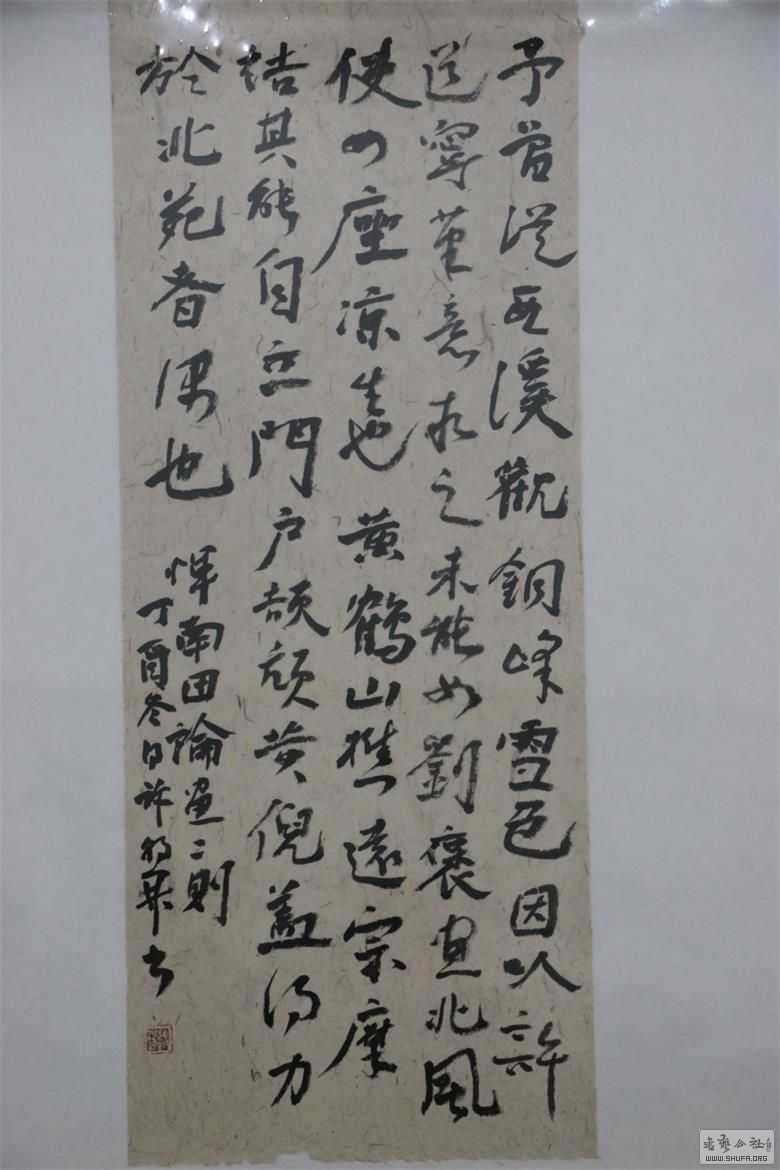 予曾從西溪觀銅峰雪色因以許
道寧筆意求之未能如劉褒畫北風
使四座凉生也黄鶴山樵遠宗摩
詰其能自立門户頡頏黄倪蓋得力
於北苑者深也
惲南田論畫二則
丁酉冬日許书
書藝公社
WWW.SHUFA.ORG